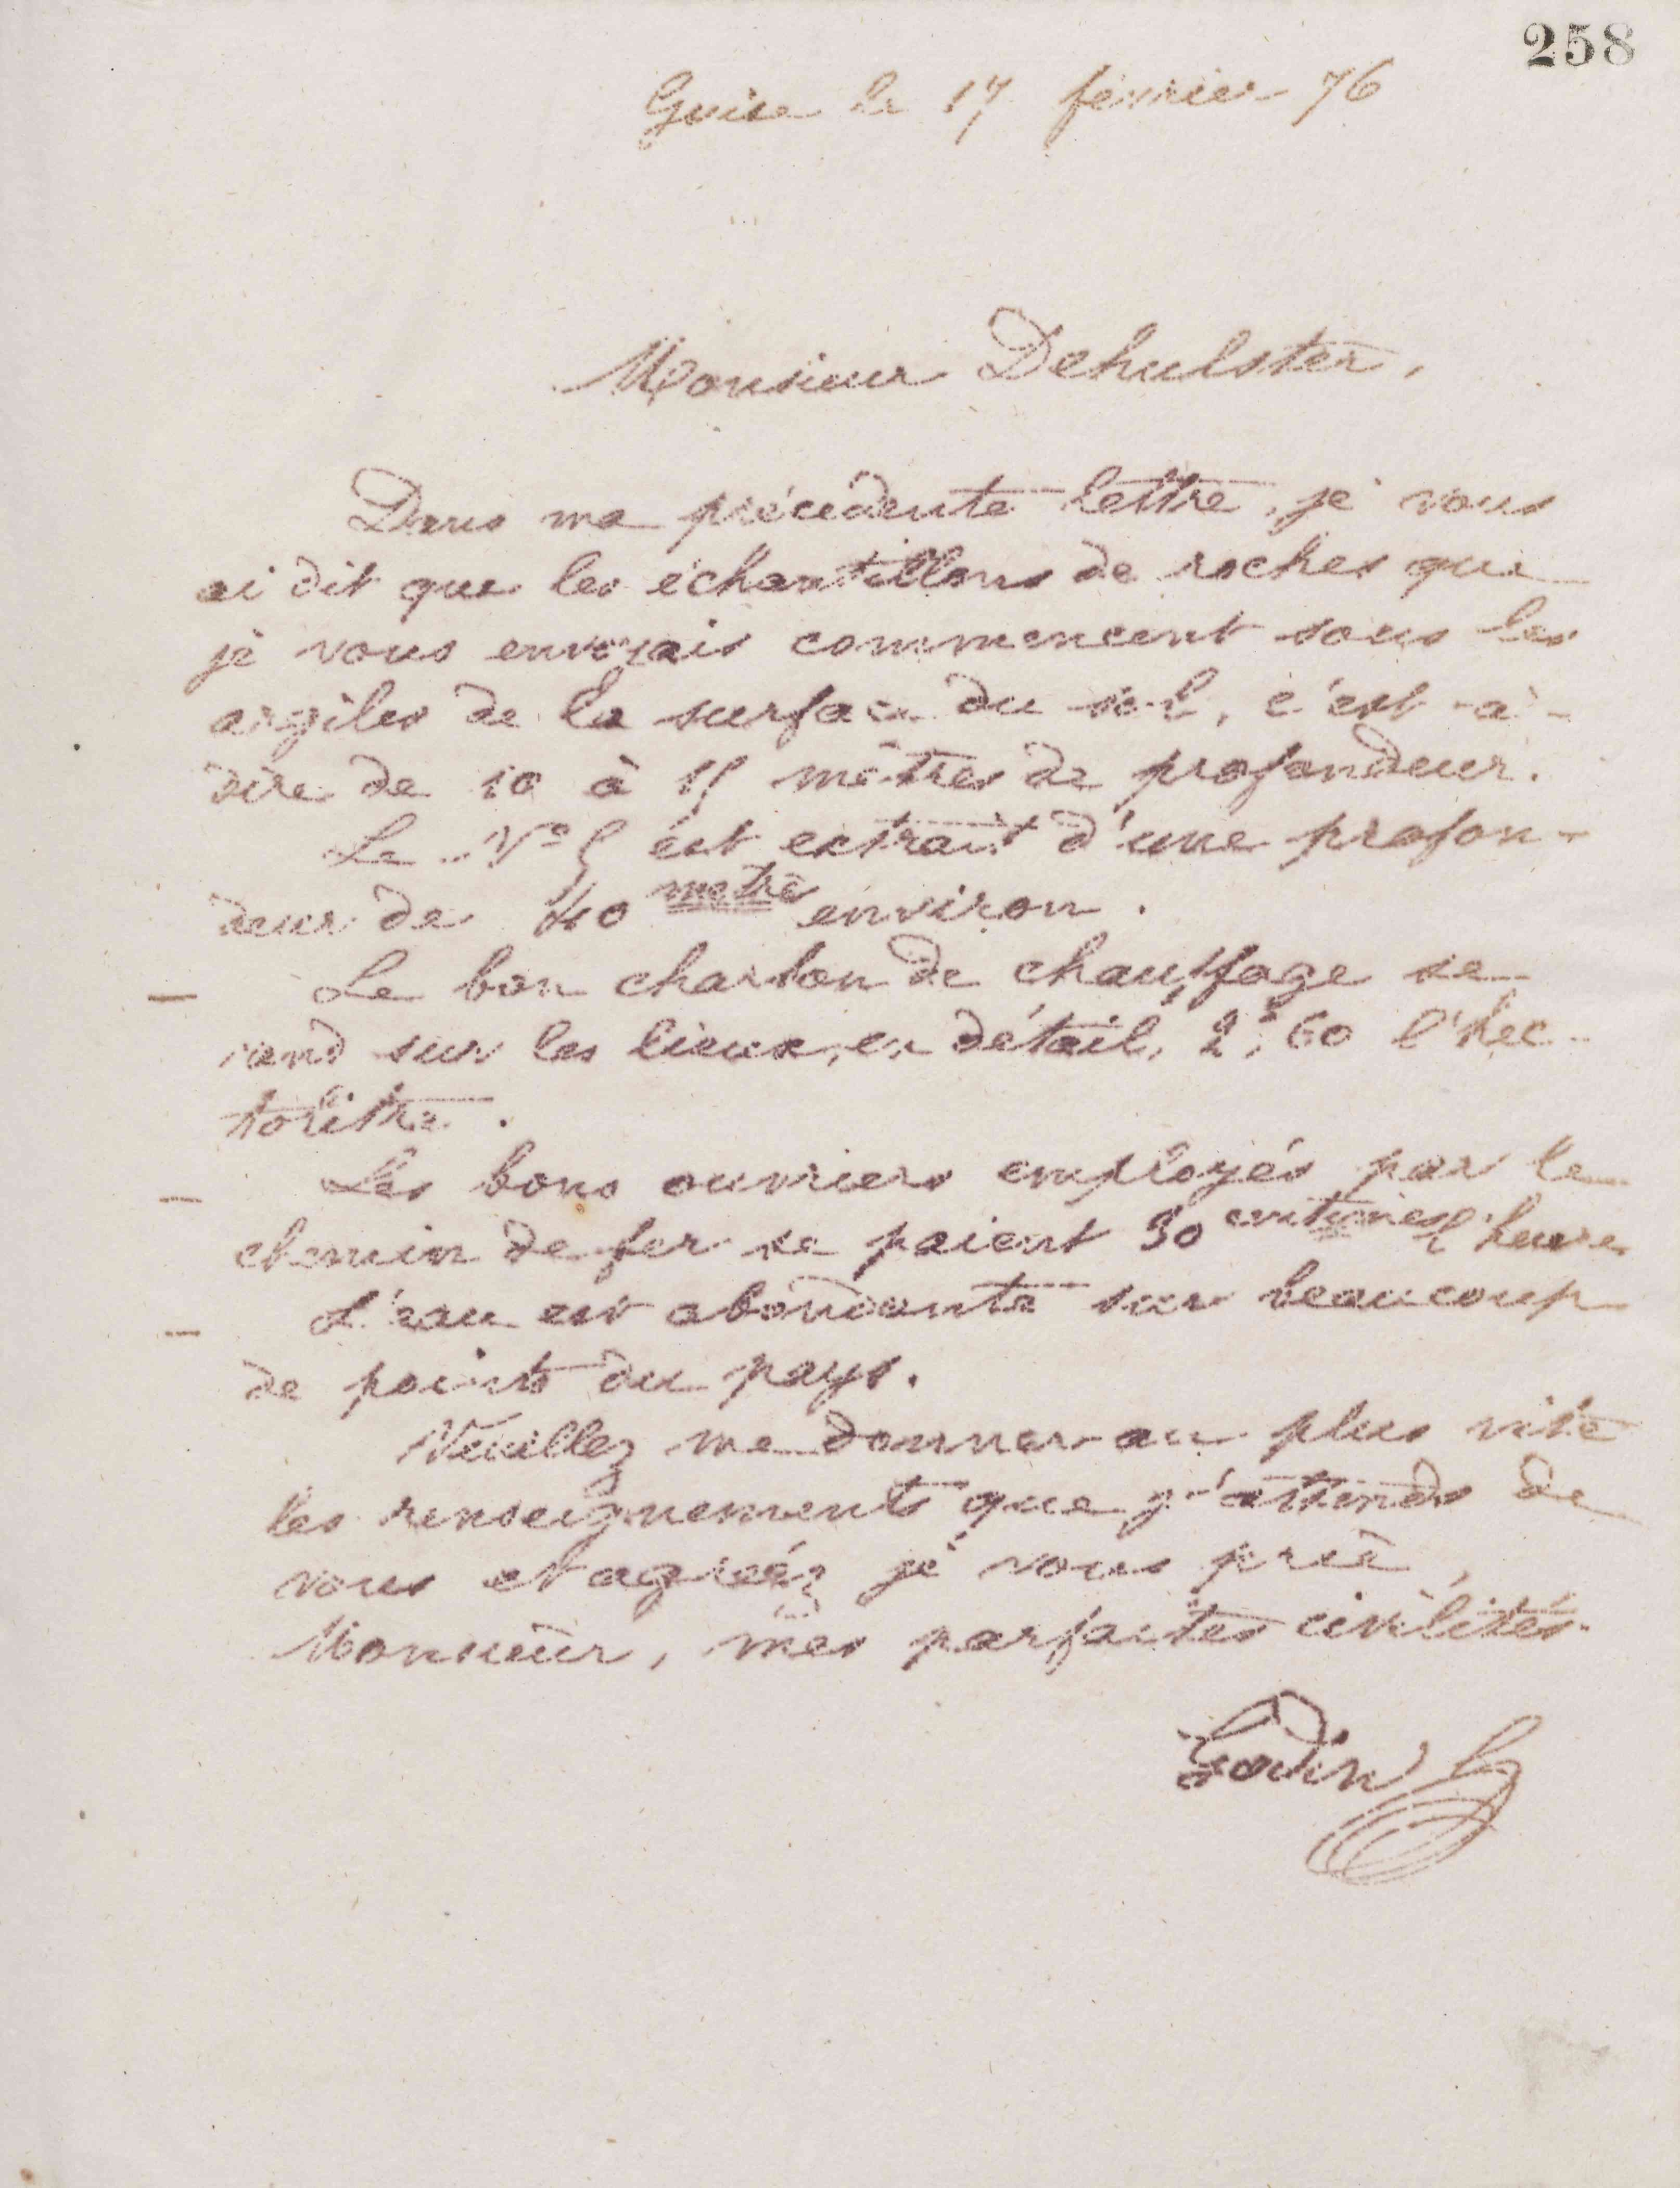 258
Guise le 17 février 76
Monsieur Dehulster,
Dans ma précédente lettre, je vous
ai dit que les échantillons de roches que
je vous envoyais commencent sous les
argiles de la surface du sol, c'est-à-
dire de 10 à 15 mètres de profondeur.
Le N° 5 est extrait d'une profon-
deur de 40 mètre environ.
— Le bon charbon de chauffage se
vend sur les lieux, en détail, 2f,60 l'hec-
tolitre.
— Les bons ouvriers employés par le
chemin de fer se paient 30 centimes l'heure
— L'eau est abondante sur beaucoup
de points du pays.
Veuillez me donner au plus vite
les renseignements que j'attends de
vous et agréez je vous prie,
Monsieur, mes parfaites civilités.
Godin